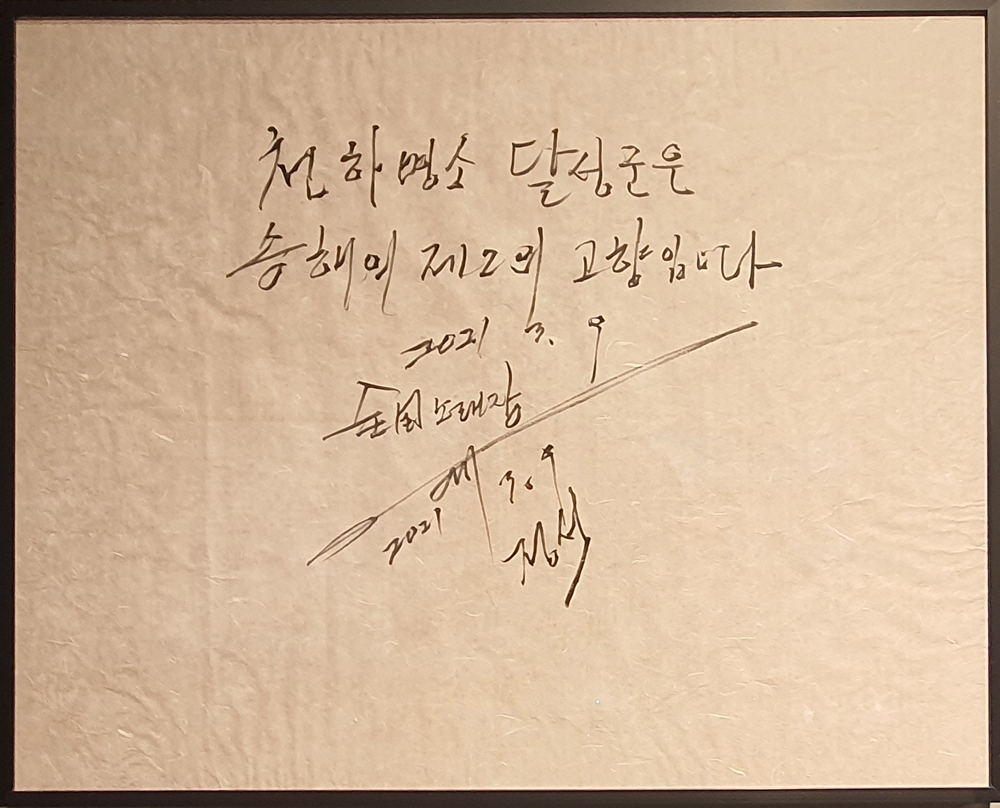 천하명소 달성군은
송해의 제2의 고향입니다
2021 3. 9
노래자랑
2021 3.9